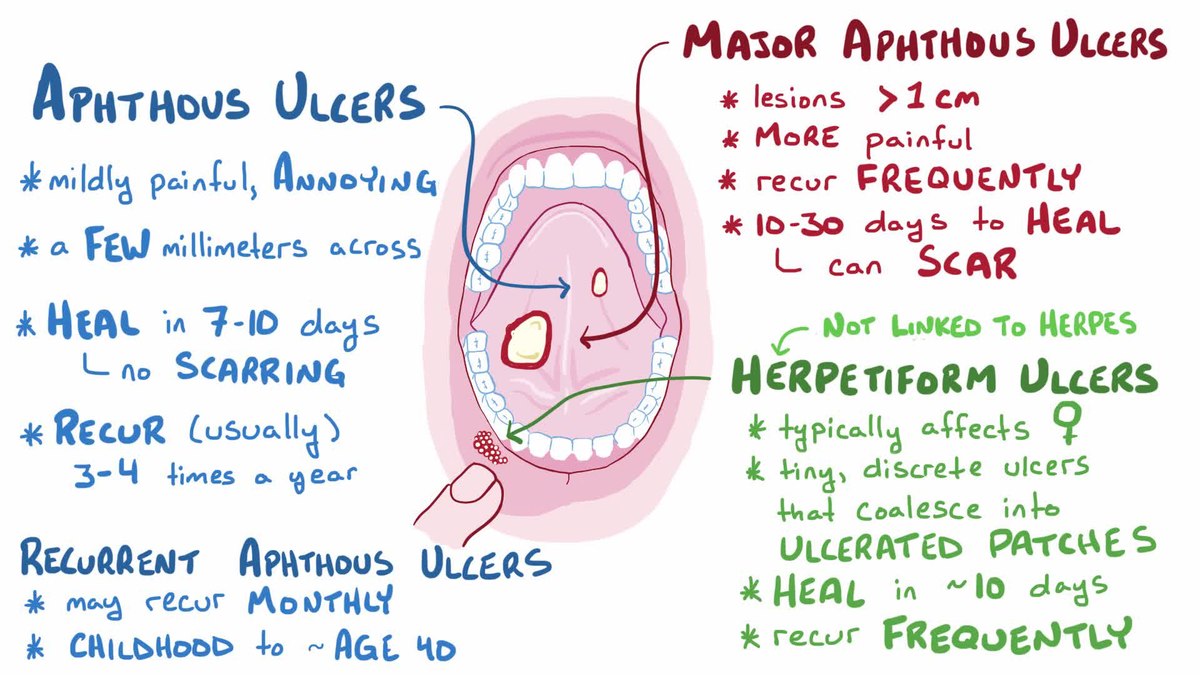 APHTHOUS ULCERS
* mildly painful, ANNOYING
* a FEW millimeters across
* HEAL in 7-10 days
no SCARRING
* RECUR (usually)
3-4 times a year
RECURRENT APHTHOUS ULCERS
* may recur MONTHLY
* CHILDHOOD to ~ AGE 40
MAJOR APHTHOUS ULCERS
* lesions > 1 cm
* MORE painful
* recur FREQUENTLY
* 10-30 days to HEAL
can SCAR
NOT LINKED TO HERPES
HERPETIFORM ULCERS
* typically affects ♀
* tiny, discrete ulcers
that coalesce into
ULCERATED PATCHES
* HEAL in ~10 days
* recur FREQUENTLY